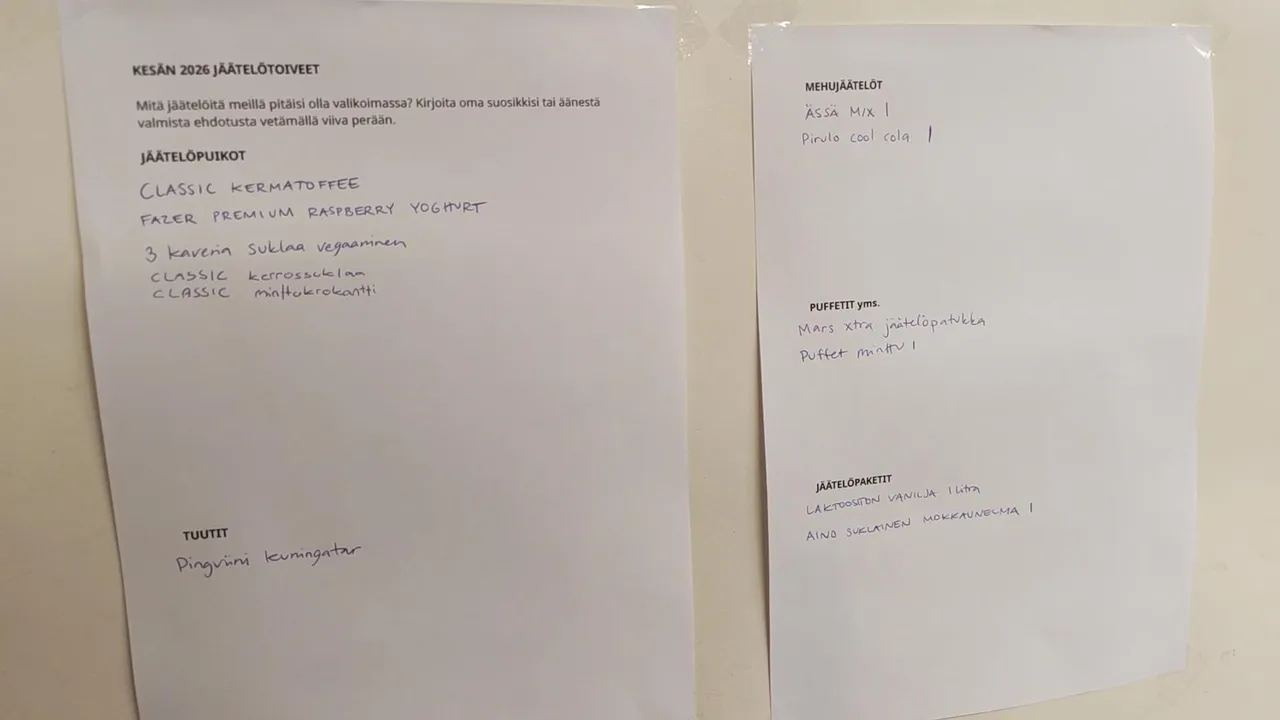 KESÄN 2026 JÄÄTELÖTOIVEET
Mitä jäätelöitä meillä pitäisi olla valikoimassa? Kirjoita oma suosikkisi tai äänestä
valmista ehdotusta vetämällä viiva perään.
JÄÄTELÖPUIKOT
CLASSIC KERMATOFFEE
FAZER PREMIUM RASPBERRY YOGHURT
3 kaveria suklaa vegaaninen
CLASSIC kerrossuklaa
CLASSIC minttukrokantti
TUUTIT
Pingviini kuningatar
MEHUJÄÄTELÖT
ÄSSÄ MIX |
Pirulo cool cola |
PUFFETIT yms.
Mars xtra jäätelöpatukka
Puffet minttu |
JÄÄTELÖPAKETIT
LAKTOOSITON VANILJA 1 litra
AINO SUKLAINEN MOKKAUNELMA |